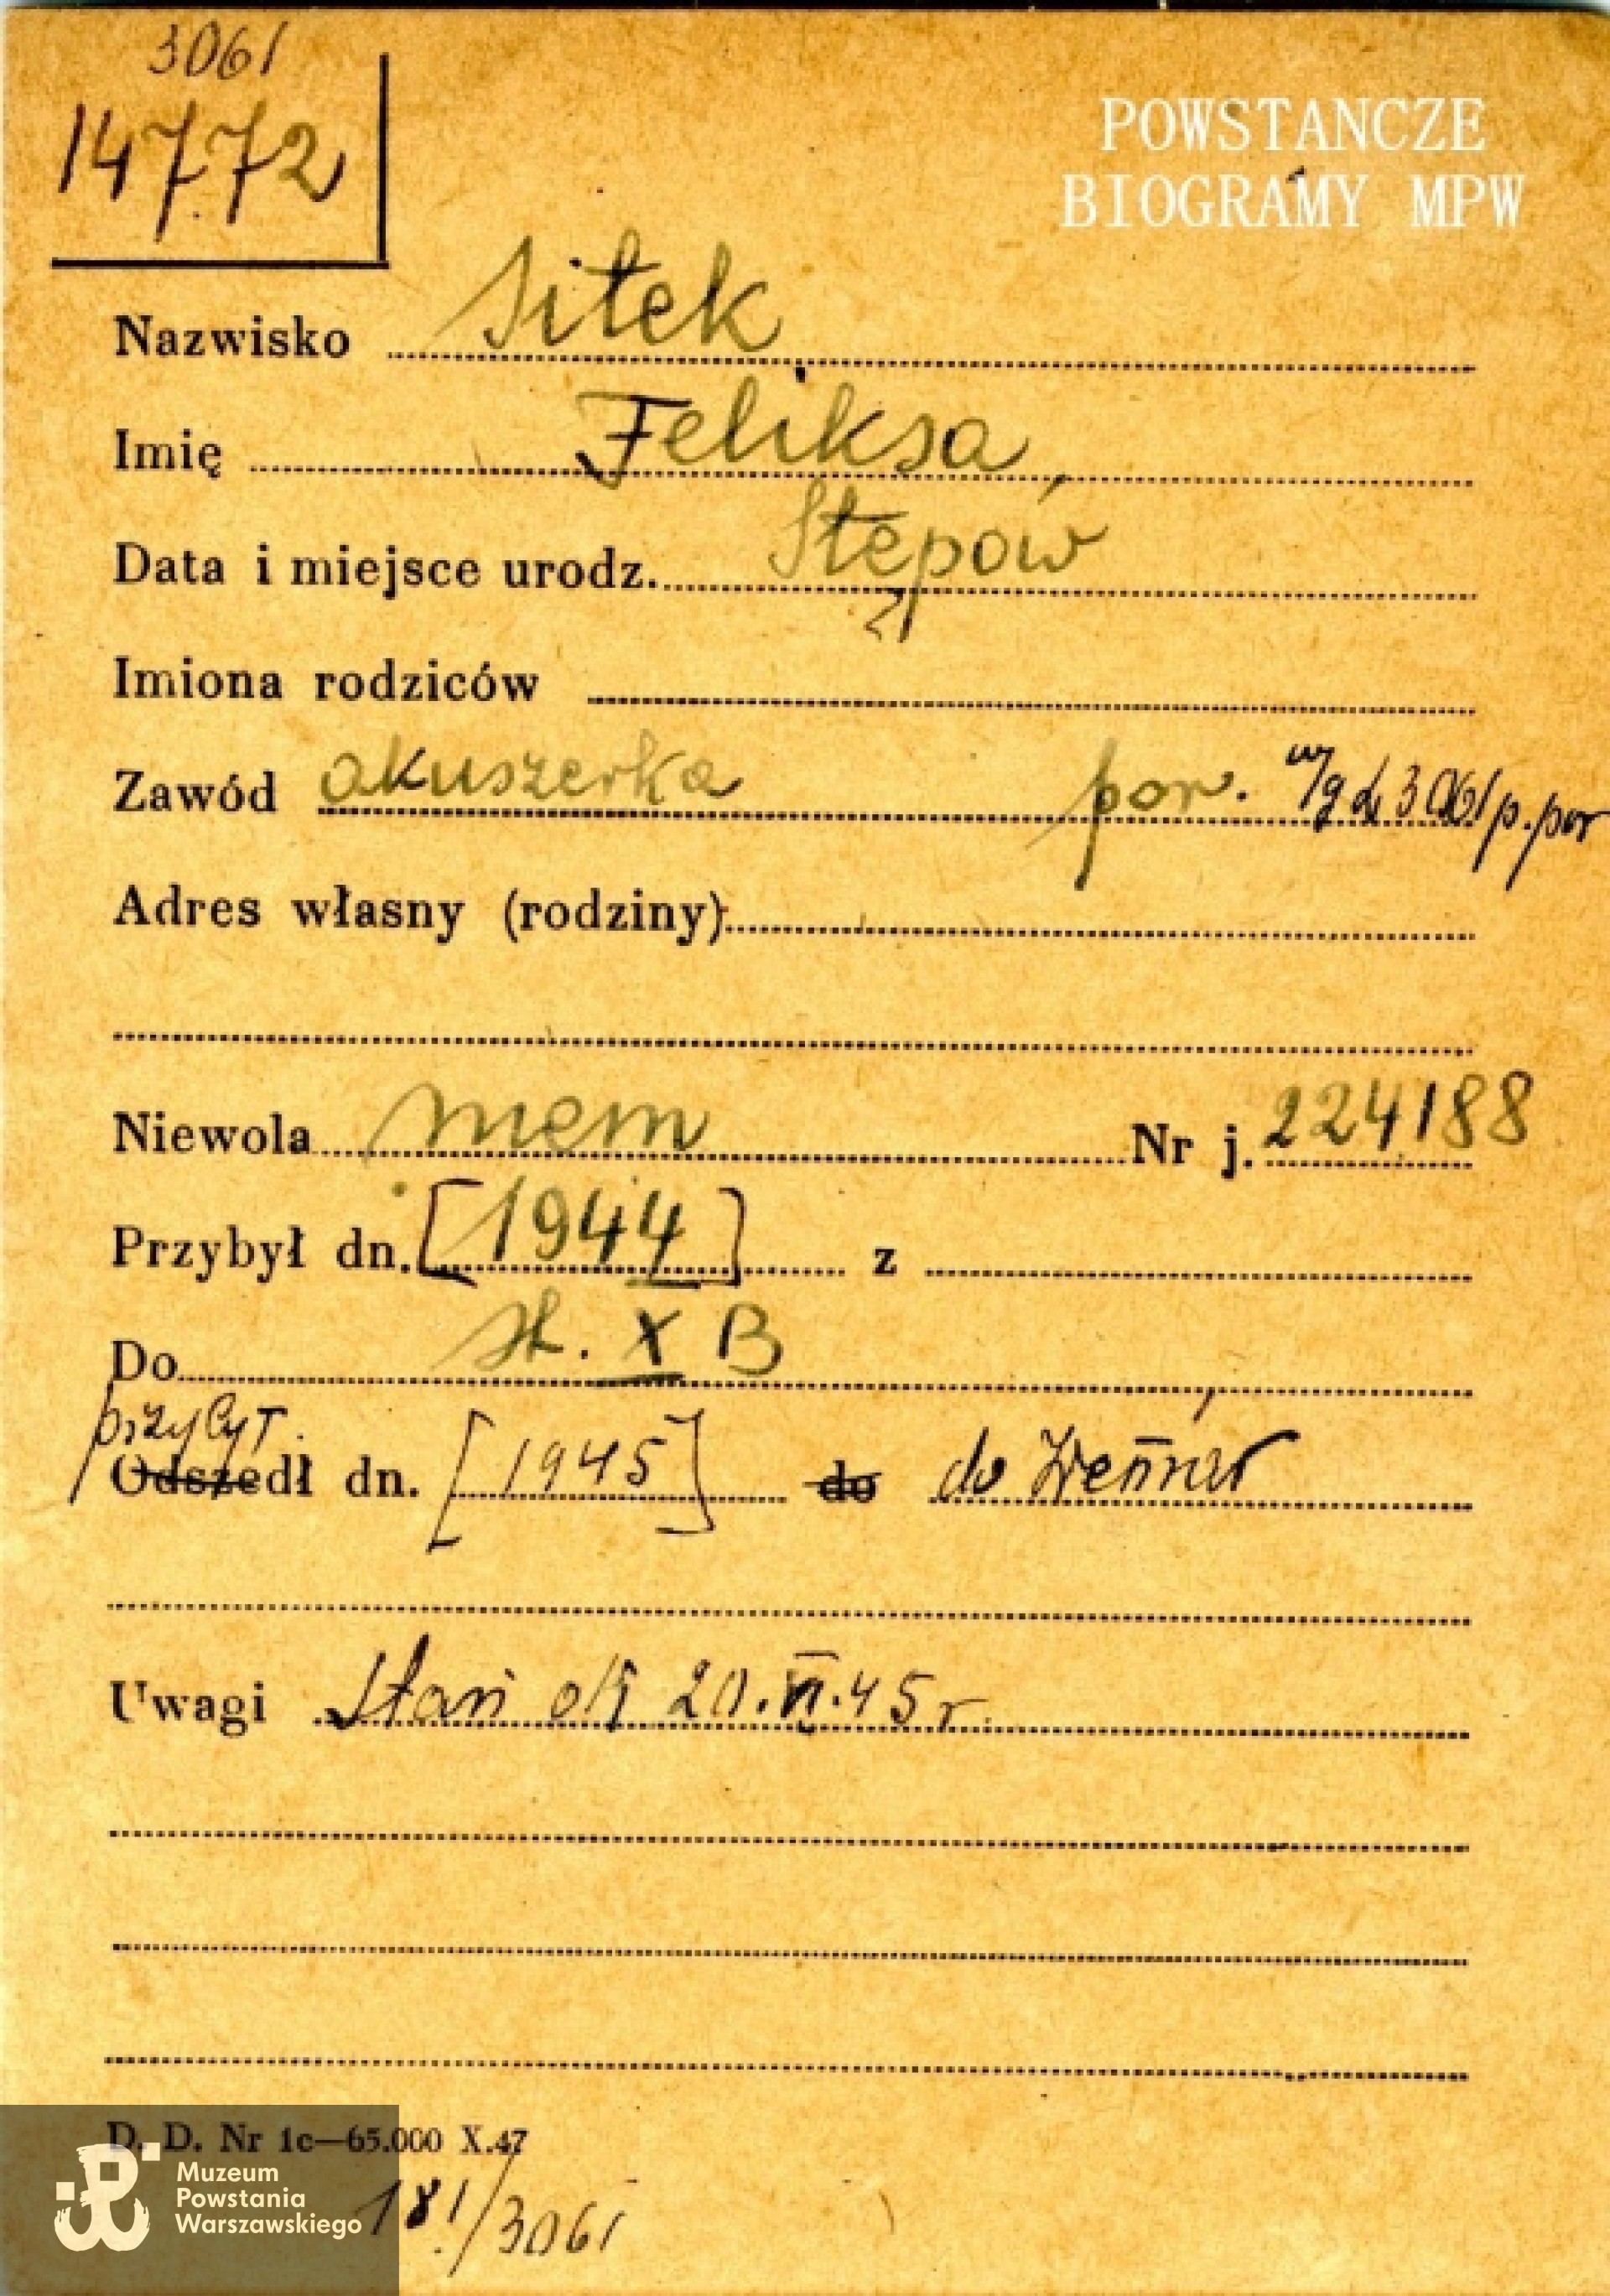 3061
14772
POWSTANCZE
BIOGRAMY MPW
Nazwisko Sitek
Imię Feliksa
Data i miejsce urodz. Stępów
Imiona rodziców
Zawód akuszerka por. w/g 3061 p.por
Adres własny (rodziny)
Niewola niem Nr j. 224188
Przybył dn. [1944] z
Do st. X B
przybył.
Odszedł dn. [1945] do do
Uwagi Stan 20.VI.45 r.
D. D. Nr 1c—65.000 X.47
181/3061
Muzeum
Powstania
Warszawskiego